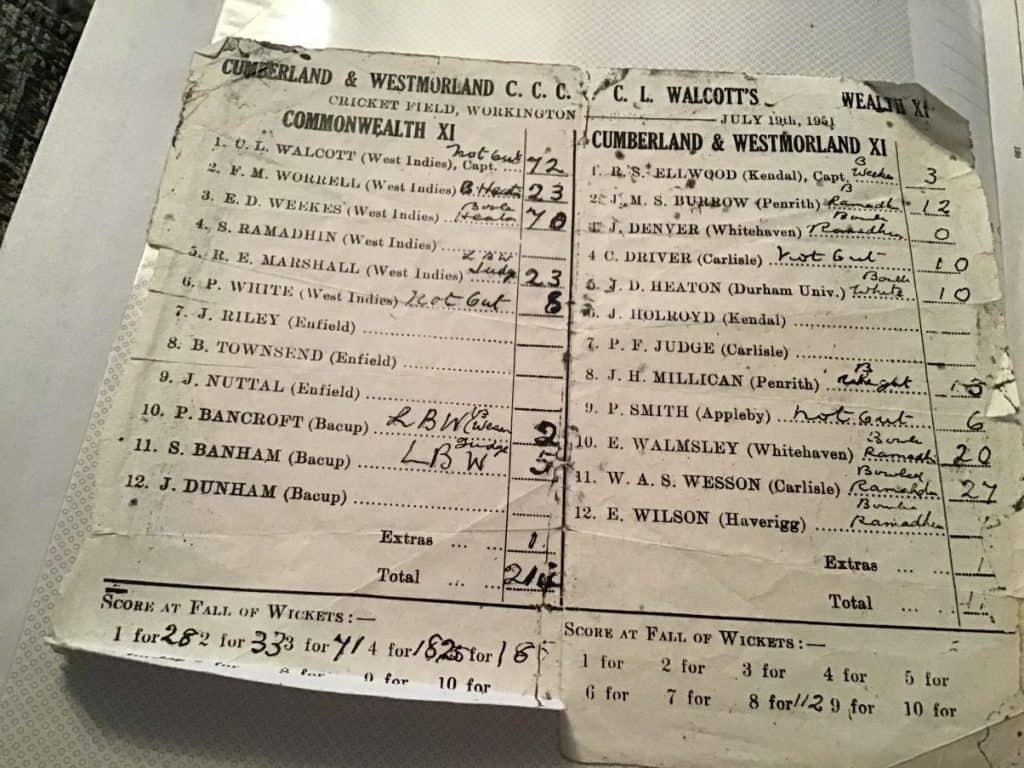 CUMBERLAND & WESTMORLAND C. C. C.
CRICKET FIELD, WORKINGTON
COMMONWEALTH XI
1. C. L. WALCOTT (West Indies), Capt. Not Out 72
2. F. M. WORRELL (West Indies) B Heaton 23
3. E. D. WEEKES (West Indies) Bowled Heaton 70
4. S. RAMADHIN (West Indies)
5. R. E. MARSHALL (West Indies) LBW Judge 23
6. P. WHITE (West Indies) Not Out 8
7. J. RILEY (Enfield)
8. B. TOWNSEND (Enfield)
9. J. NUTTAL (Enfield)
10. P. BANCROFT (Bacup) LBW B 2
11. S. BANHAM (Bacup) LBW Judge 5
12. J. DUNHAM (Bacup)
Extras ... ... 1
Total ... ... 214
SCORE AT FALL OF WICKETS:—
1 for 28 2 for 33 3 for 71 4 for 182 5 for 18
9 for 10 for
C. L. WALCOTT'S WEALTH XI
JULY 19th, 1951
CUMBERLAND & WESTMORLAND XI
1. R. S. ELLWOOD (Kendal), Capt. B Weekes 3
2. J. M. S. BURROW (Penrith) B Ramadhin 12
J. DENVER (Whitehaven) Bowled Ramadhin 0
4 C. DRIVER (Carlisle) Not Out 10
5. J. D. HEATON (Durham Univ.) Bowled White 10
6. J. HOLROYD (Kendal)
7. P. F. JUDGE (Carlisle)
8. J. H. MILLICAN (Penrith) B
9. P. SMITH (Appleby) Not Out 6
10. E. WALMSLEY (Whitehaven) Bowled Ramadhin 20
11. W. A. S. WESSON (Carlisle) Bowled Ramadhin 27
12. E. WILSON (Haverigg) Bowled Ramadhin
Extras ... ... 1
Total ... ... 1
SCORE AT FALL OF WICKETS:—
1 for 2 for 3 for 4 for 5 for
6 for 7 for 8 for 112 9 for 10 for